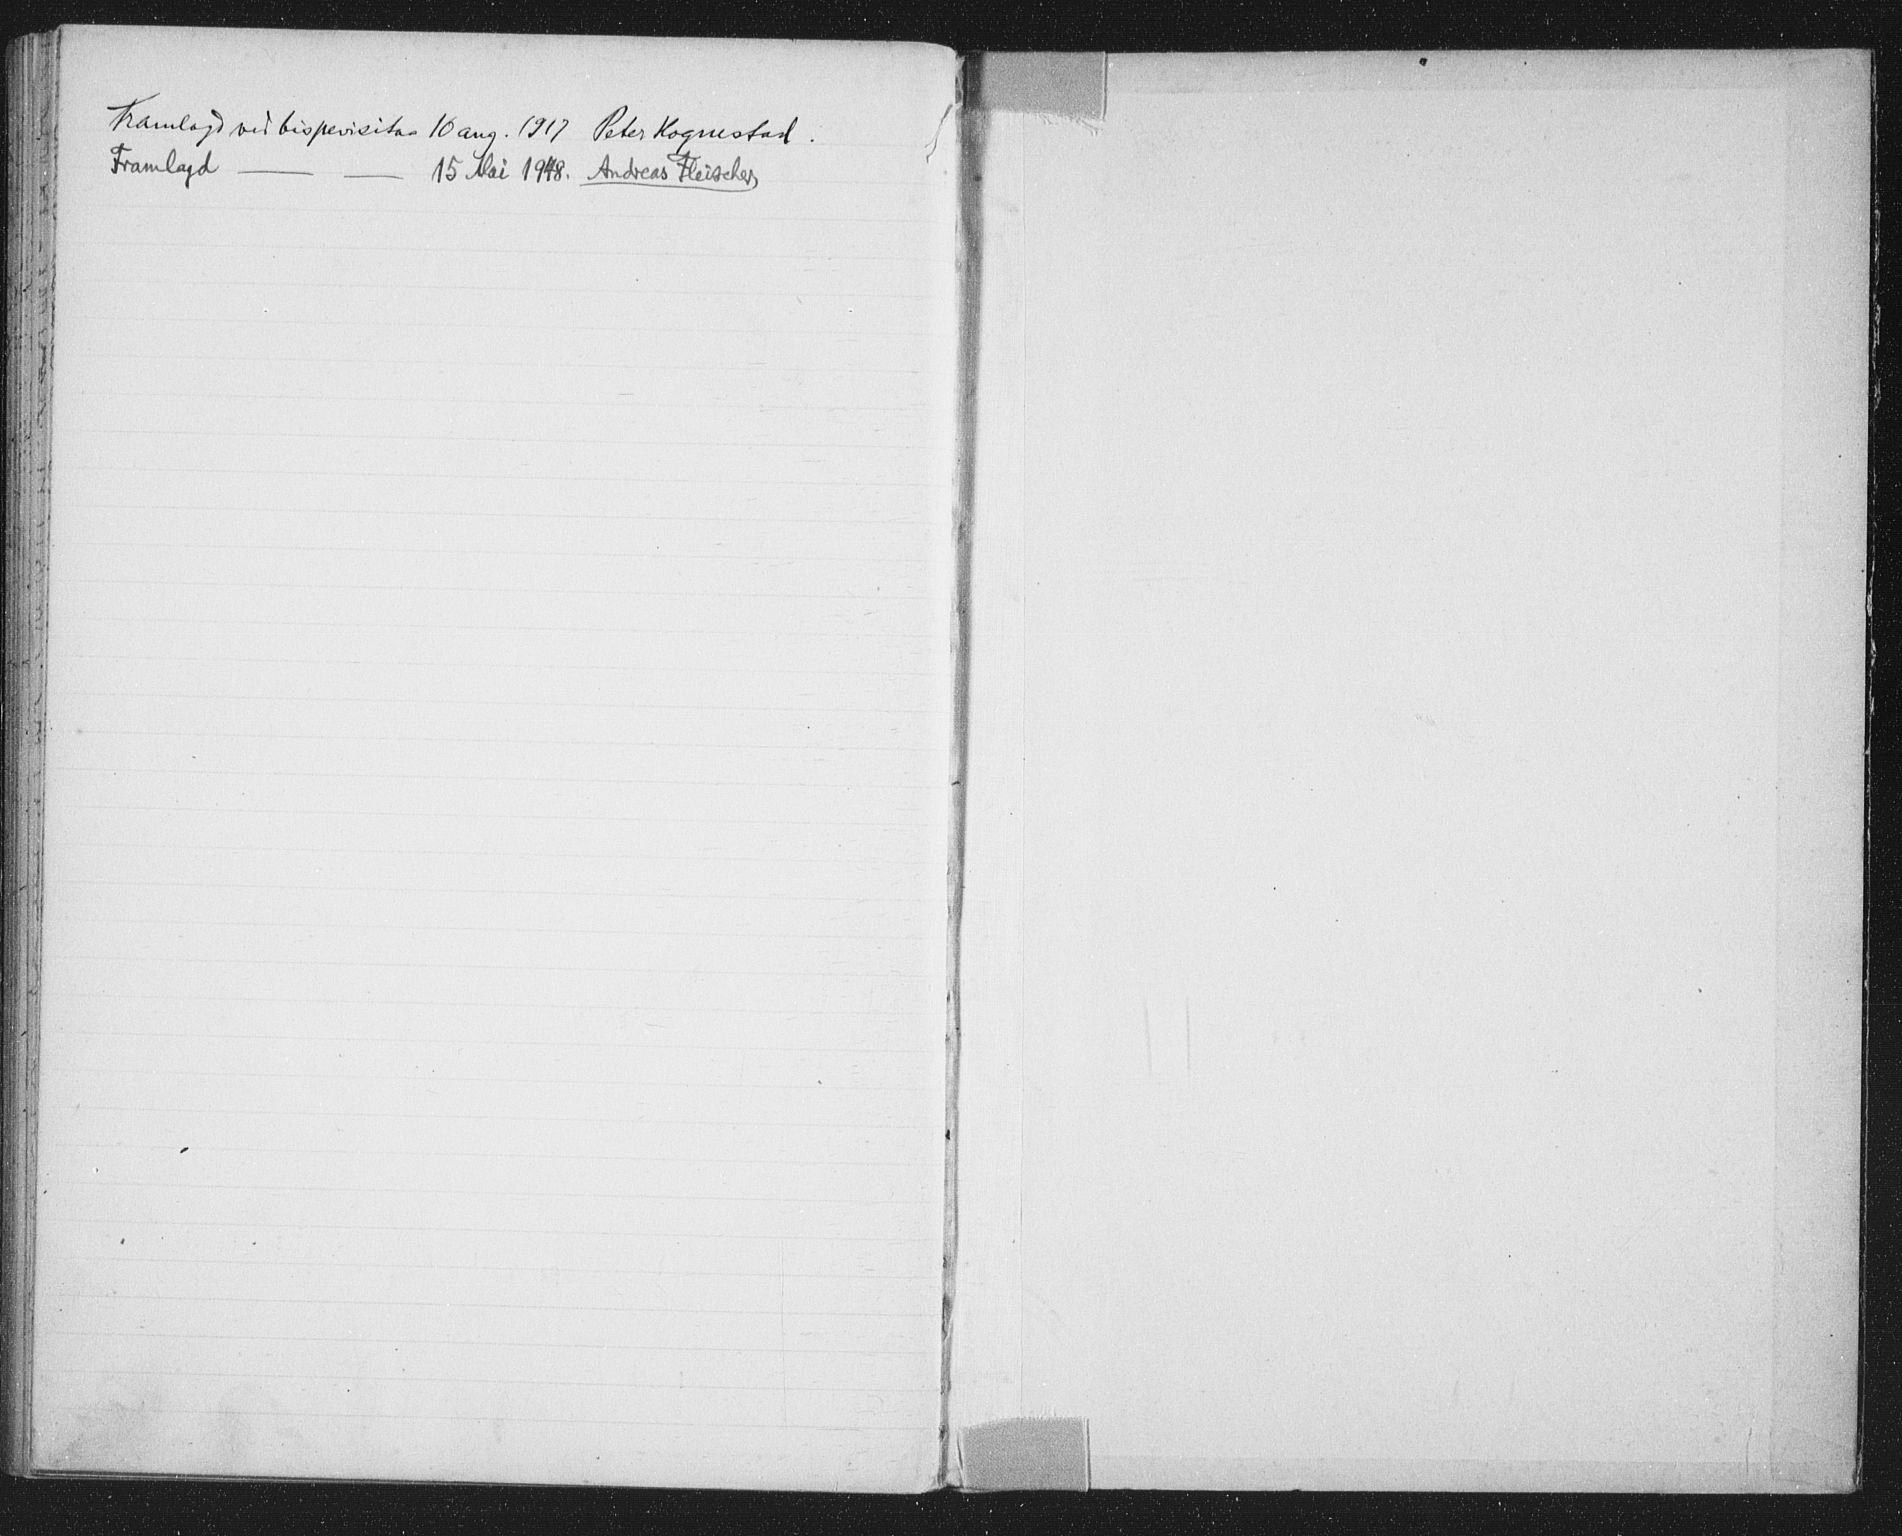 Framlagd ved bispevisitas 10 aug. 1917 Peter Hognestad.
Framlagd — — 15 Mai 1948. Andreas Fleischer